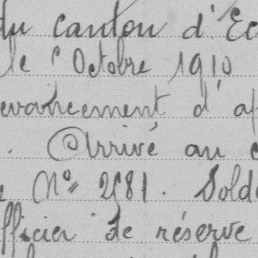 du canton d'Ec
le 1 Octobre 1910
evancement d'af
. Arrivé au c
e N° 2581. Sold
fficier de réserve